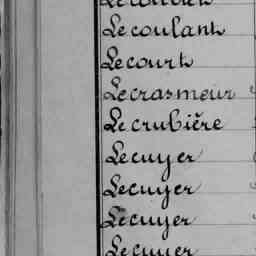 Lecoulant
Lecourt
Lecrasmeur
Lecrubière
Lecuyer
Lecuyer
Lecuyer
Lecuyer